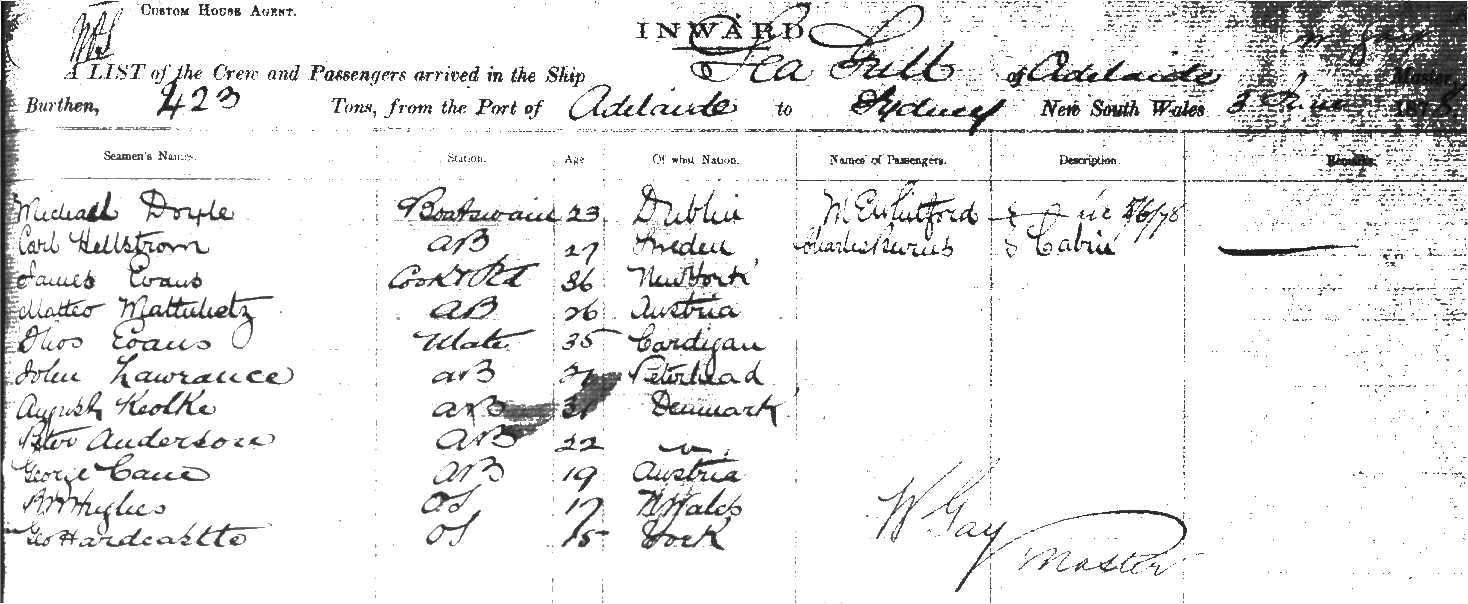 CUSTOM HOUSE AGENT.
INWARD
A LIST of the Crew and Passengers arrived in the Ship Sea Gull of Adelaide W Gay Master,
Burthen, 423 Tons, from the Port of Adelaide to Sydney New South Wales 3 June 1878
Seamen's Names. Station. Age Of what Nation. Names of Passengers. Description. Remarks.
Michael Doyle Boatswain 23 Dublin
Carl Hellstrom AB 27 Sweden Charles Cabin
James Evans Cook & Std 36 New York
Matteo AB 26 Austria
Thos Evans Mate 35 Cardigan
John Lawrance AB Peterhead
August Keolke AB 31 Denmark
Peter Anderson AB 22 "
George Cane AB 19 Austria
Hughes OS 17 N Wales
Geo Hardcastle OS 15 York
W Gay
Master